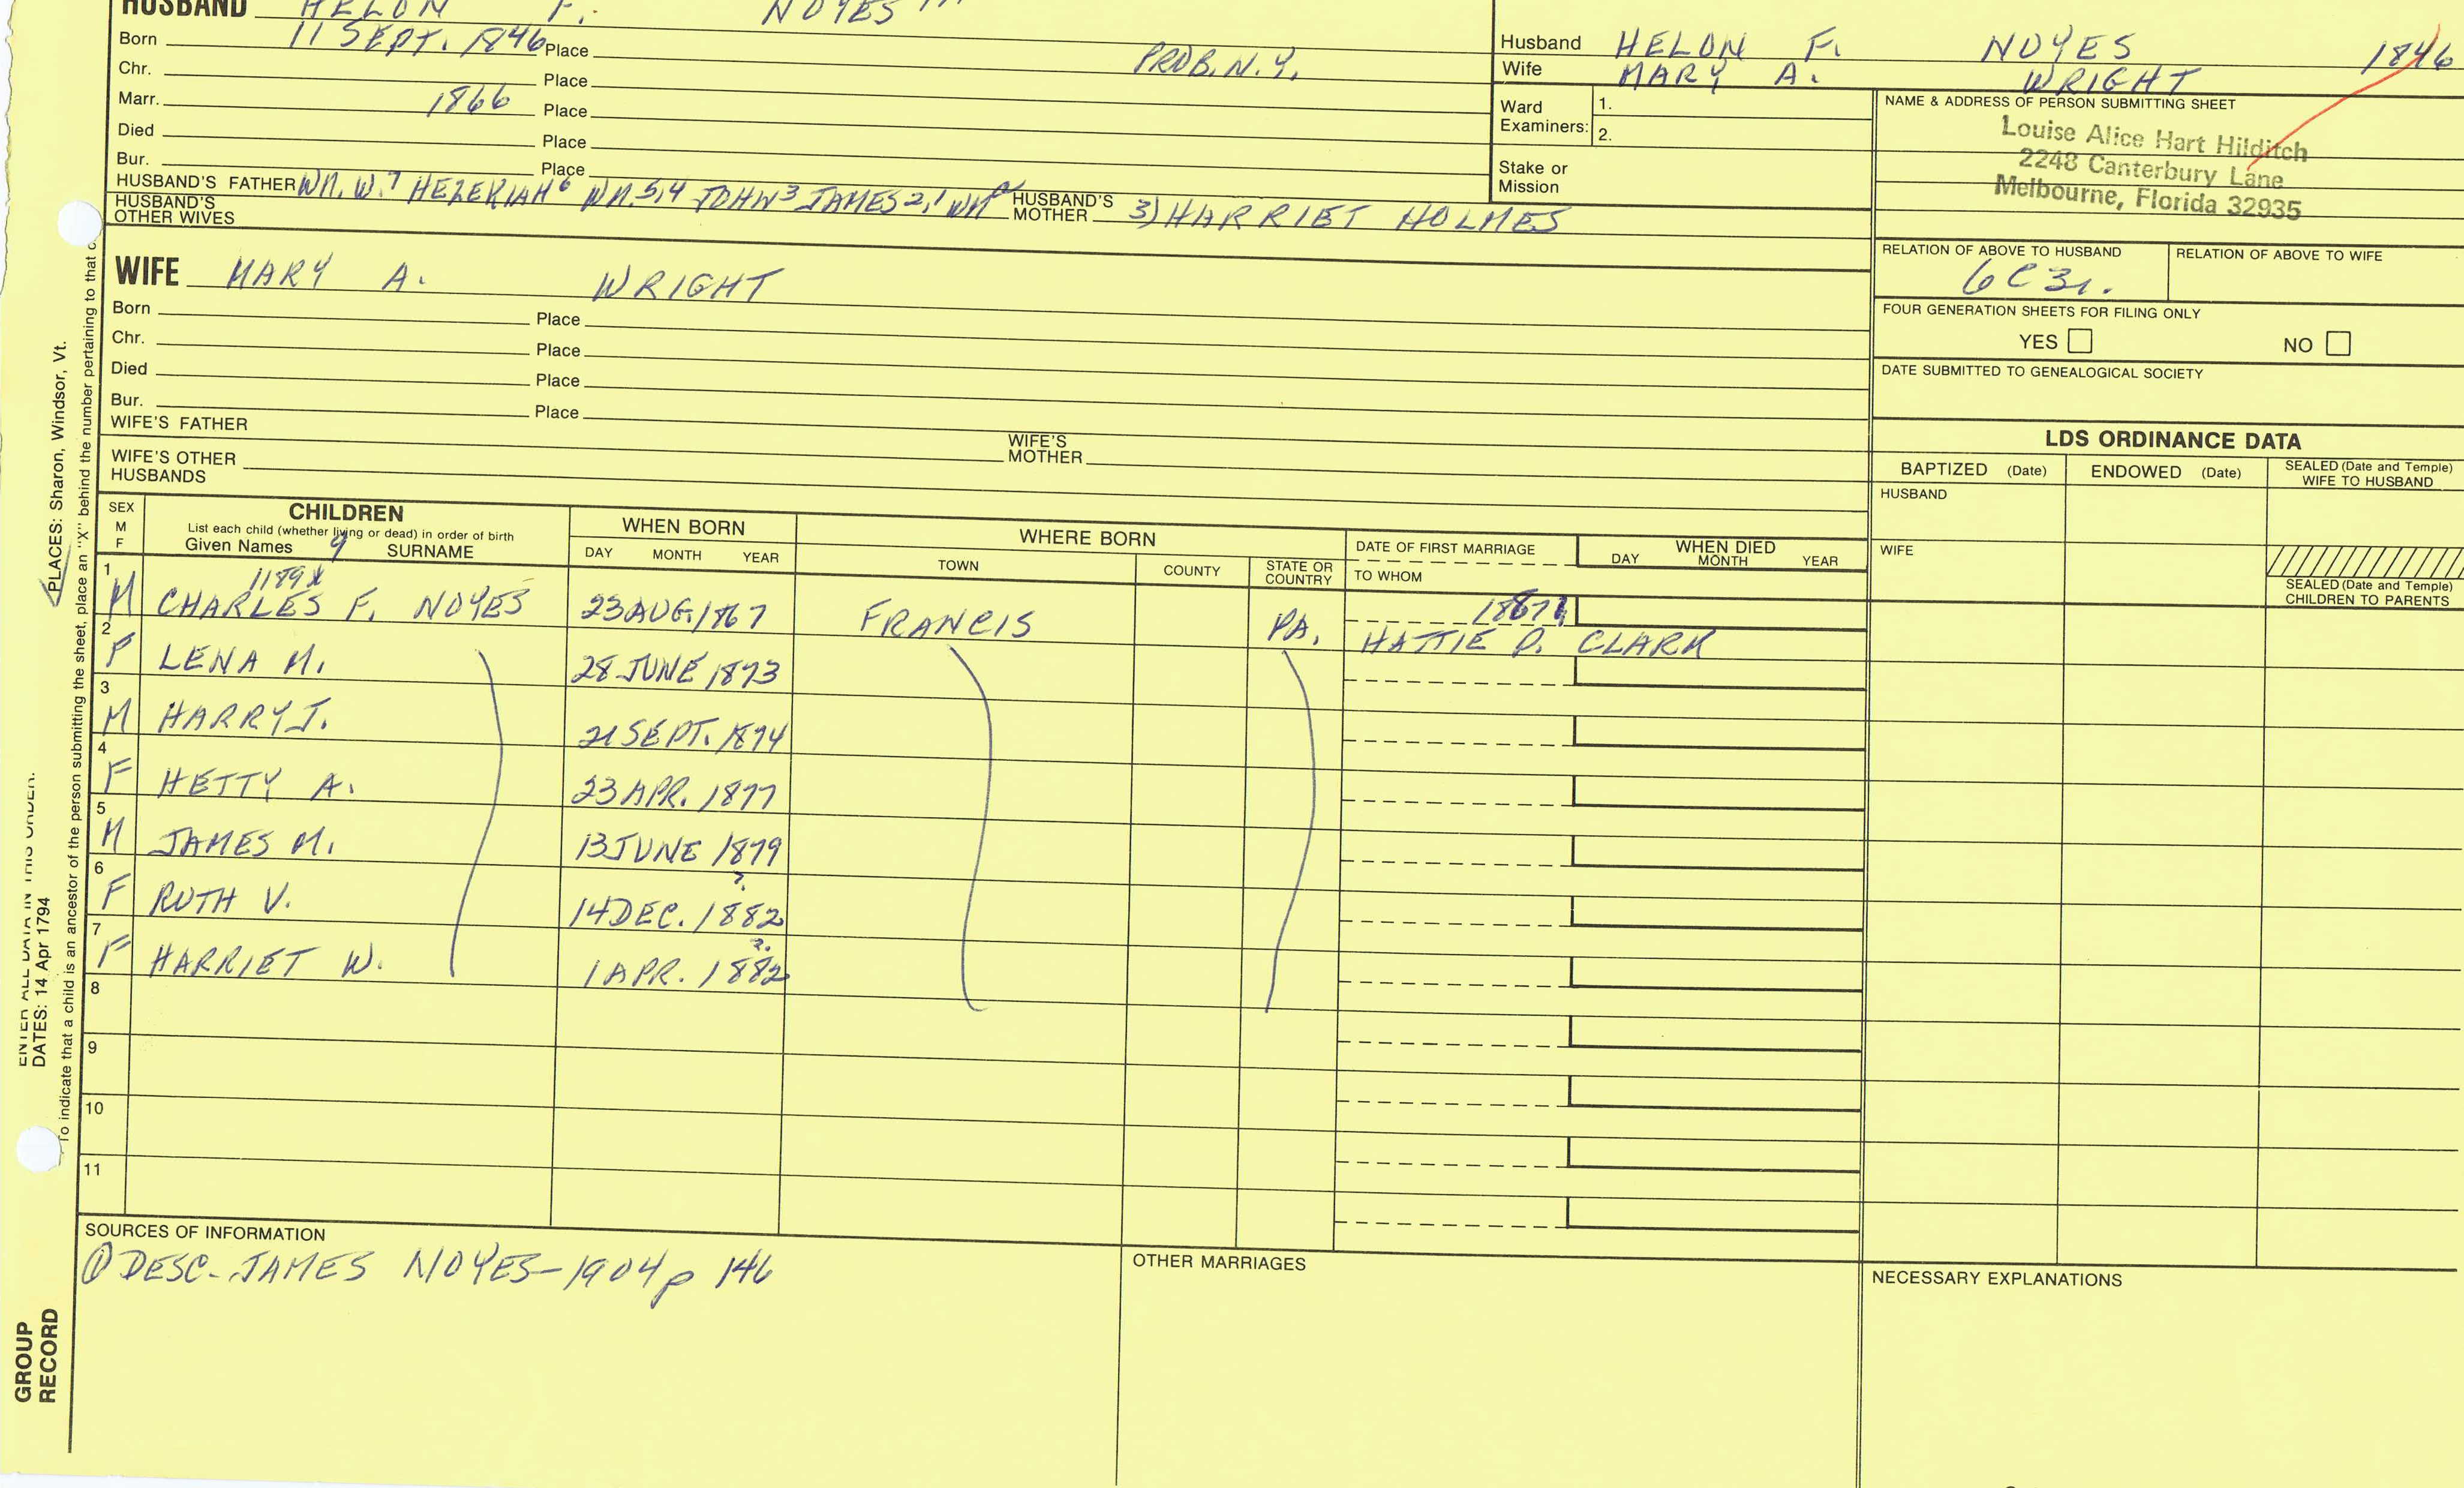 HUSBAND HELON F. NOYES
Born 11 SEPT. 1846 Place PROB. N.Y.
Chr. Place
Marr. 1866 Place
Died Place
Bur. Place
HUSBAND'S FATHER WM. W.7 HEZEKIAH6 WM.5,4 JOHN3 JAMES2,1 WMA HUSBAND'S MOTHER 3) HARRIET HOLMES
HUSBAND'S OTHER WIVES
WIFE MARY A. WRIGHT
Born Place
Chr. Place
Died Place
Bur. Place
WIFE'S FATHER WIFE'S MOTHER
WIFE'S OTHER HUSBANDS
Husband HELON F. NOYES 1846
Wife MARY A. WRIGHT
Ward Examiners: 1.
2.
Stake or Mission
NAME & ADDRESS OF PERSON SUBMITTING SHEET
Louise Alice Hart Hilditch
2248 Canterbury Lane
Melbourne, Florida 32935
RELATION OF ABOVE TO HUSBAND RELATION OF ABOVE TO WIFE
6C3r.
FOUR GENERATION SHEETS FOR FILING ONLY
YES NO
DATE SUBMITTED TO GENEALOGICAL SOCIETY
LDS ORDINANCE DATA
BAPTIZED (Date) ENDOWED (Date) SEALED (Date and Temple) WIFE TO HUSBAND
HUSBAND
WIFE
SEALED (Date and Temple) CHILDREN TO PARENTS
SEX M F
CHILDREN
List each child (whether living or dead) in order of birth
Given Names 9 SURNAME
WHEN BORN
DAY MONTH YEAR
WHERE BORN
TOWN COUNTY STATE OR COUNTRY
DATE OF FIRST MARRIAGE
TO WHOM
WHEN DIED
DAY MONTH YEAR
1 M 1189x CHARLES F. NOYES 23 AUG. 1867 FRANCIS PA. HATTIE D. CLARK
2 F LENA M. 28 JUNE 1873
3 M HARRY J. 21 SEPT. 1874
4 F HETTY A. 23 APR. 1877
5 M JAMES M. 13 JUNE 1879
6 F RUTH V. 14 DEC. 1882 ?
7 F HARRIET W. 1 APR. 1882 ?
8
9
10
11
SOURCES OF INFORMATION
① DESC. JAMES NOYES-1904 p 146
OTHER MARRIAGES
NECESSARY EXPLANATIONS
PLACES: Sharon, Windsor, Vt.
ENTER ALL DATA IN THIS ORDER:
DATES: 14 Apr 1794
To indicate that a child is an ancestor of the person submitting the sheet, place an "X" behind the number pertaining to that
GROUP
RECORD